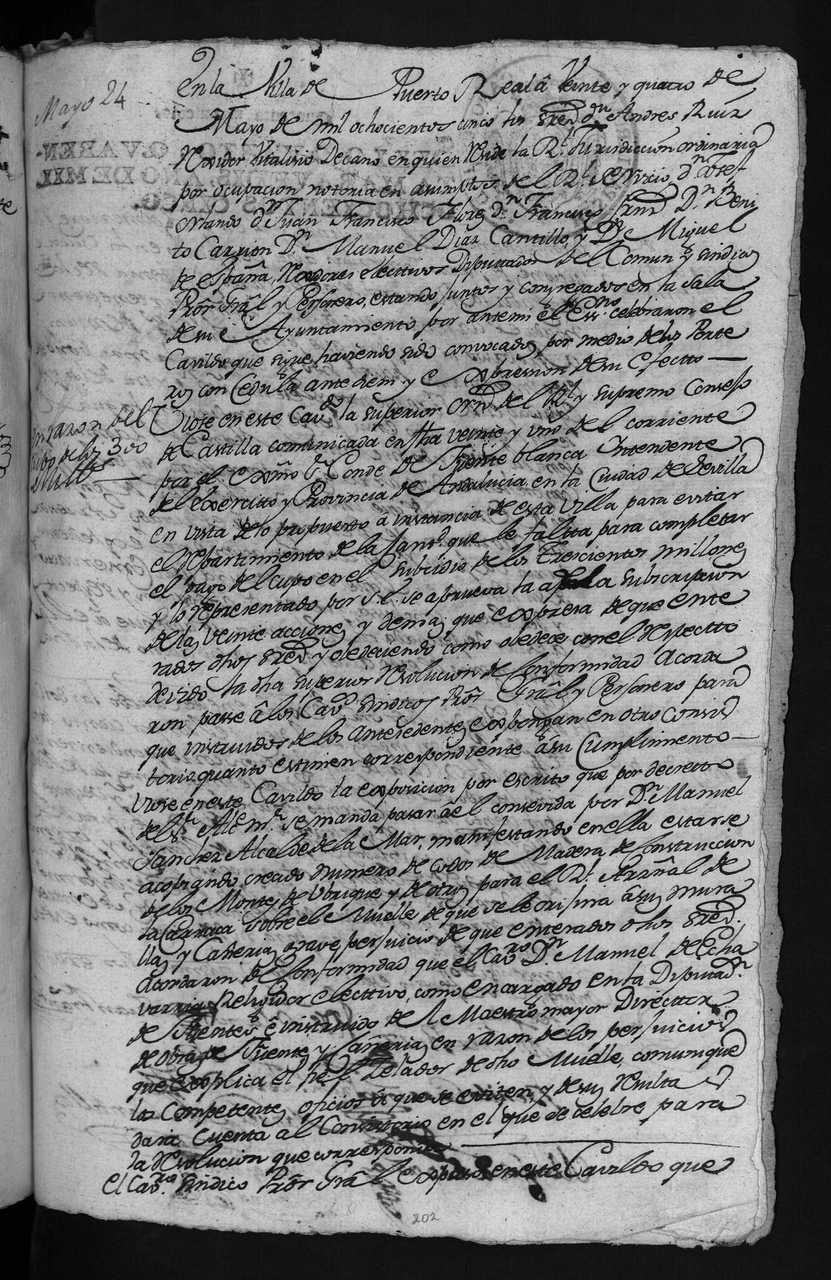 Mayo 24
En la Villa de Puerto Real â Veinte y quatro de
Mayo de mil ochocientos cinco los Sres. Dn. Andres Ruiz
Rexidor Vitalicio Decano en quien Reside la Rl. Jurisdiccion ordinaria
por ocupacion notoria en asumptos del Rl. servicio, dn.
Orlando dn. Juan Francisco Flores dn. Francisco Dn. Beni
to Carrion Dn. Manuel Diaz Cantillo, y Dn. Miguel
de españa, Rexidores electivos Diputados del Comun y sindicos
Pror. Gral. y Personero, estando juntos y congregados en la sala
de su Ayuntamiento por antemi el Essno. celebraron el
Cavildo que sigue haviendo sido convocados por medio de los Porte
ros con Cedula ante diem y expresion de su efectto
En razon del
cupo de los 300
Mills.
Viose en este Cavdo. la superior orn. del Rl. y supremo Consejo
de Castilla comunicada en fha veinte y uno del corriente
por el Exmo Sr. Conde de Fuente blanca Intendente
del exercitto y Provincia de Andalucia en la Ciudad de Sevilla
en vista de lo propuesto â instancia de esta Villa para evitar
el Repartimiento de la cantd. que le faltta para completar
el pago del cupo en el subsidio de los Trescientos millones
y lo representado por S.E. se aprueva la subscripcion
de las veinte acciones y demas que expresa de que ente
rados dhos Sres. y obedeciendo como obedecen con el Respectto
devido la dha superior Resolucion de conformidad acorda
ron passe â los Cavs. sindicos Pror. Gral. y Personero para
que instruidos de los antecedentes expongan en otro Consis
torio quanto estimen correspondiente â su Cumplimiento
Viose en este Cavildo la exposicion por escrito que por decretto
del Sr. Alce. mr. se manda pasar âel concevida por Dn. Manuel
Sanchez Alcalde de la Mar, manifestando en ella estarse
acopiando crecido numero de codos de Madera de construccion
de los Montes de Ubrique y de otros para el Rl. Arzenal de
la carraca sobre el Muelle de que se le origina â su mura
lla y Cañeria grave perjuicio de que enterados dhos Sres.
acordaron de conformidad que el Cavro. Dn. Manuel de Echa
varria Rexidor electtivo, como encargado en la Diputadn.
de Fuentes, è instruido del Maestro mayor Director
de obras de Fuente y cañeria en razon de los perjuicios
que explica el Zelador de dho Muelle, comunique
los Competentes oficios â que se eviten, y de su Resulta
dara cuenta al Consistorio en el que se celebre para
la Resolucion que corresponda
El Cavro. sindico Pror. Gral. expuso en este Cavildo que
202